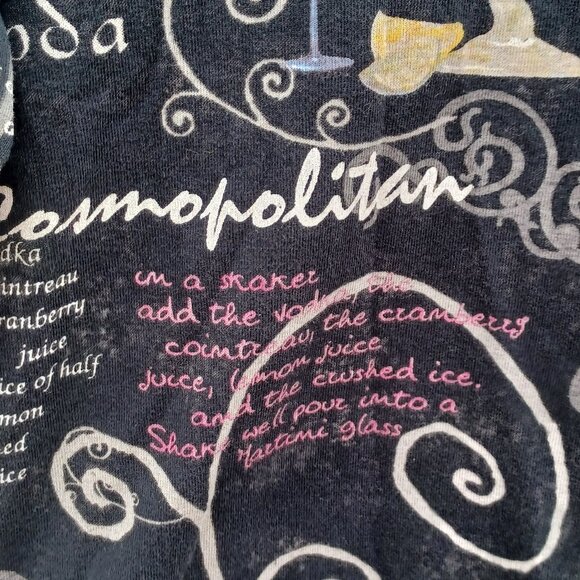 oda
Cosmopolitan
dka
intreau
ranberry
juice
ice of half
mon
ed
ice
in a shaker
add the vodka, the
cointreau, the cranberry
juice, lemon juice
and the crushed ice.
Shake well pour into a
Martini glass